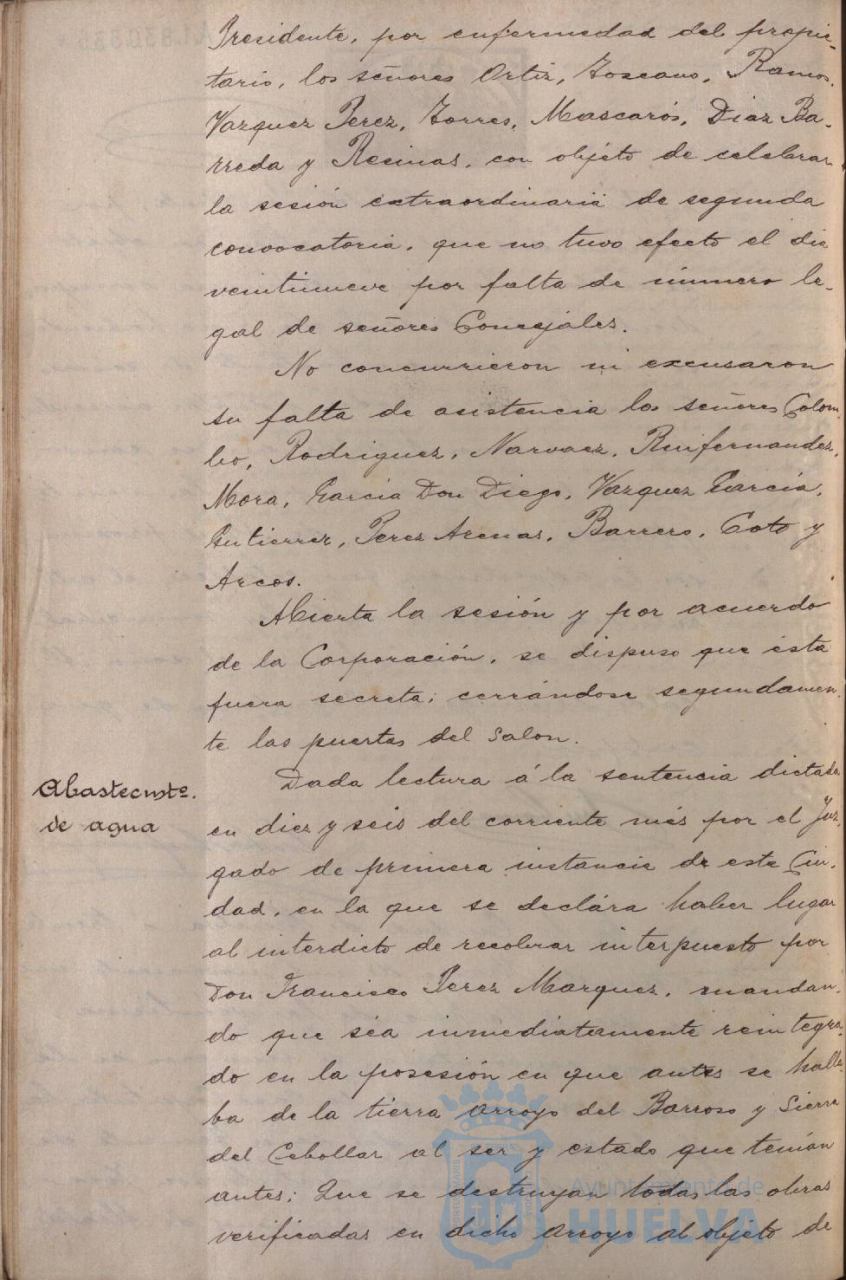 Presidente, por enfermedad del propie-
tario, los señores Ortiz, Toscano, Ramos,
Vazquez Perez, Torres, Mascarós, Diaz Ba-
rreda y Recinas, con objéto de celebrar
la sesión extraordinaria de segunda
convocatoria, que no tuvo efecto el dia
veintinueve por falta de número le-
gal de señores Concejales.
No concurrieron ni excusaron
su falta de asistencia los señores Colom-
bo, Rodriguez, Narvaez, Ruifernandez,
Mora, Garcia Don Diego, Vazquez Garcia,
Gutierrez, Perez Arenas, Barrero, Coto y
Arcos.
Abierta la sesión y por acuerdo
de la Corporación, se dispuso que ésta
fuera secreta; cerrándose segundamen-
te las puertas del Salon.
Abastecimtº.
de agua
Dada lectura á la sentencia dictada
en diez y seis del corriente més por el Juz-
gado de primera instancia de esta Ciu-
dad, en la que se declára haber lugar
al interdicto de recobrar interpuesto por
Don Francisco Perez Marquez, mandan-
do que séa inmediatamente reintegra-
do en la posesión en que antes se halla-
ba de la tierra Arroyo del Barroso y Sierra
del Cebollar al ser y estado que tenian
antes; Que se destruyan todas las obras
verificadas en dicho Arroyo al objeto de
Ayuntamiento de
HUELVA